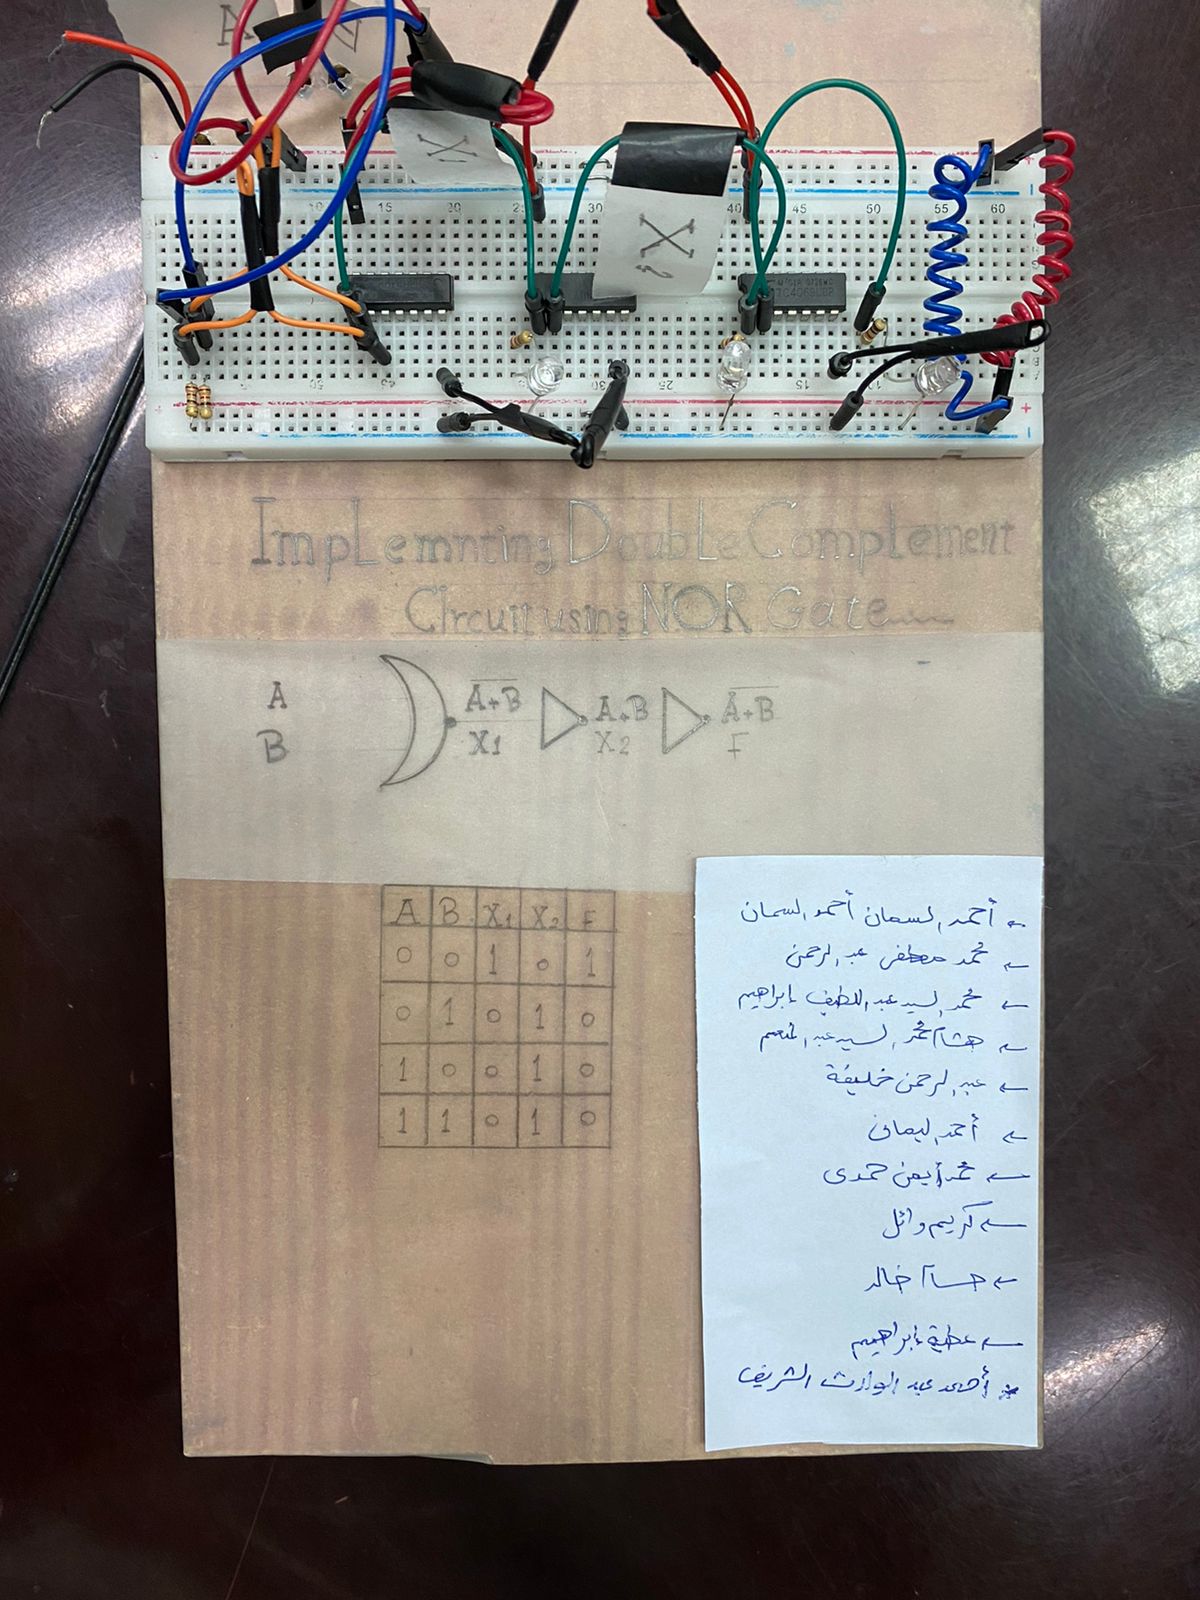 A
X1
X2
10 15 20 25 30 40 45 50 55 60
TC4069UBP
50 45 30 25 15
ImpLemnting DoubLe CompLement
Circuit using NOR Gate
A
B
A+B
X1
A+B
X2
A+B
F
A B X1 X2 F
0 0 1 0 1
0 1 0 1 0
1 0 0 1 0
1 1 0 1 0
أحمد السمان أحمد السمان
محمد مصطفى عبد الرحمن
محمد السيد عبد اللطيف إبراهيم
هشام محمد السيد عبد المنعم
عبد الرحمن خليفة
أحمد اليماني
محمد أيمن حمدى
كريم وائل
حسام خالد
عطية إبراهيم
أحمد عبد الوارث الشريف